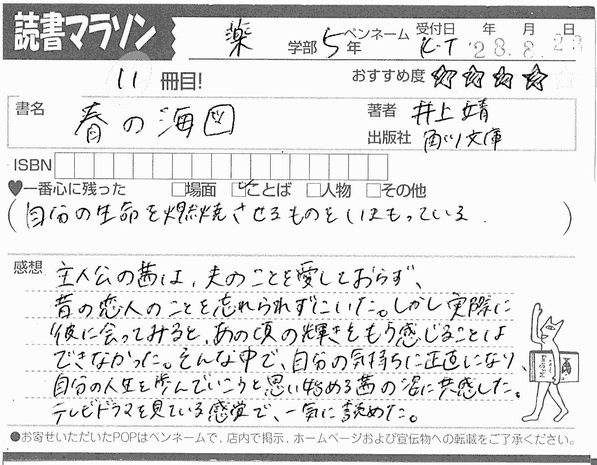 読書マラソン 薬 学部 5年 ペンネーム K.T 受付日 '28年 8月 23日
11 冊目! おすすめ度 ☆☆☆☆
書名 春の海図 著者 井上靖
出版社 角川文庫
ISBN
♥一番心に残った □場面 ☑ことば □人物 □その他
(自分の生命を燃焼させるものを私はもっている。)
感想 主人公の茜は、夫のことを愛しておらず、
昔の恋人のことを忘れられずにいた。しかし実際に
彼に会ってみると、あの頃の輝きをもう感じることは
できなかった。そんな中で、自分の気持ちに正直になり、
自分の人生を歩んでいこうと思い始める茜の姿に共感した。
テレビドラマを見ている感覚で、一気に読めた。
●お寄せいただいたPOPはペンネームで、店内で掲示、ホームページおよび宣伝物への転載をご了承ください。